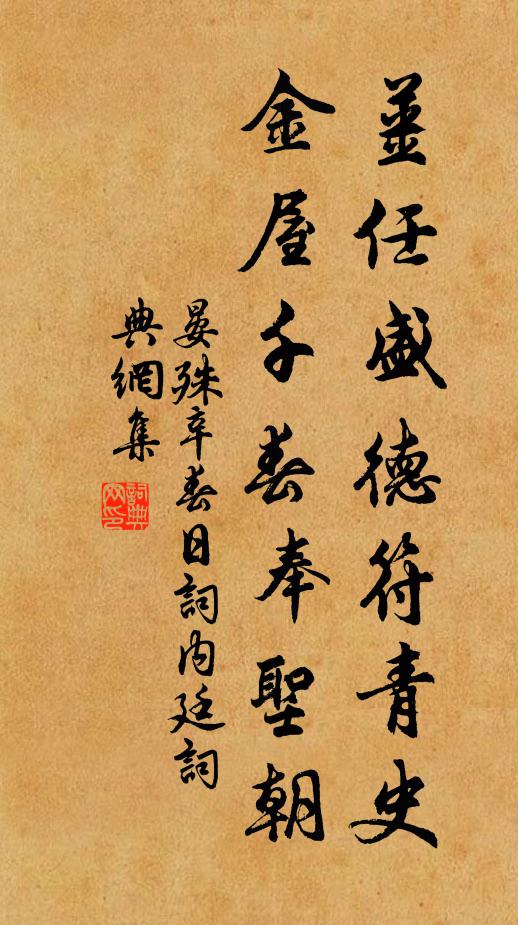 薑任盛德符青史
金屋千春奉聖朝
晏殊辛春日詞内廷詞
典網集
詞典網印